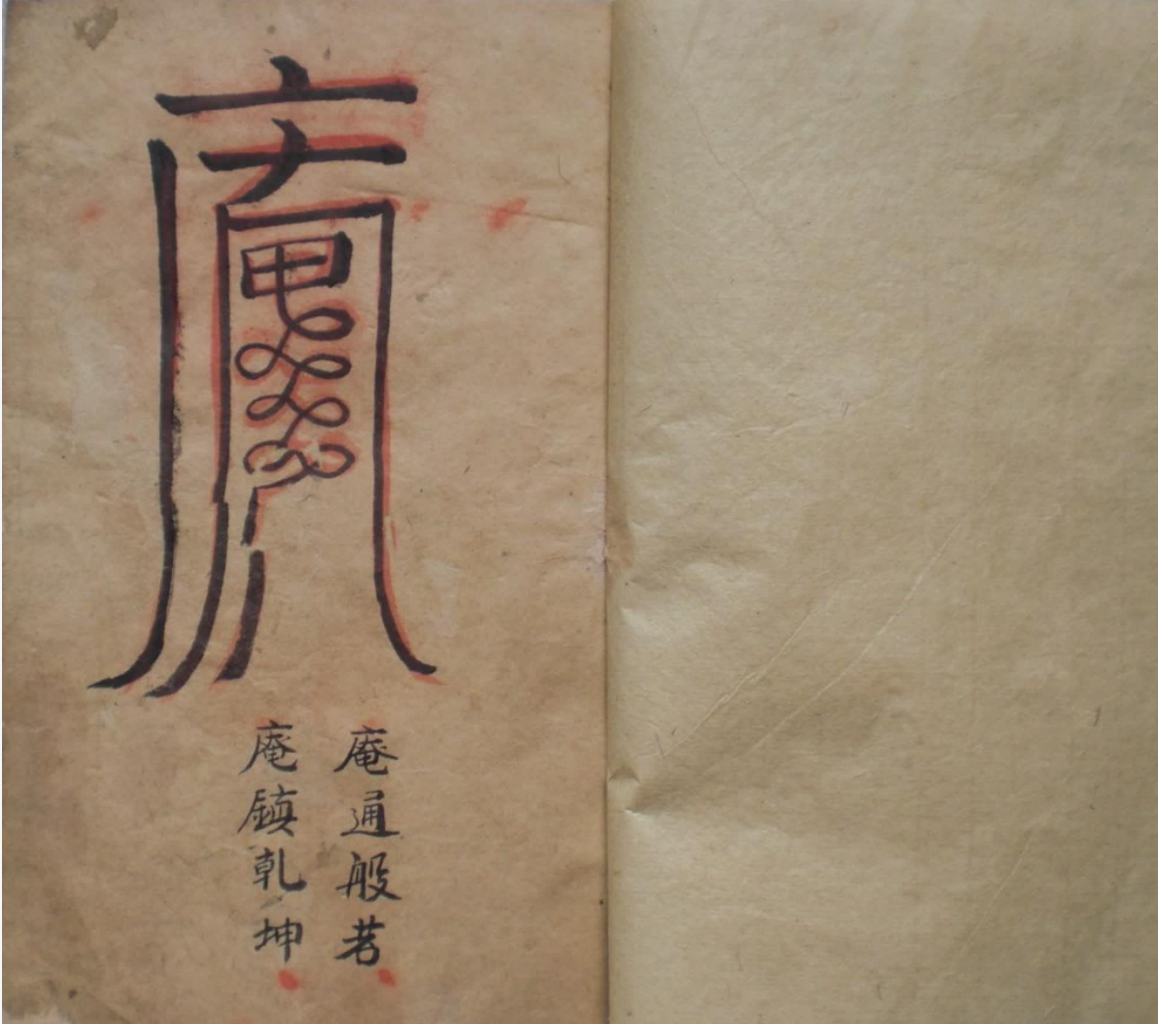 庵通般若
庵鎮乾坤